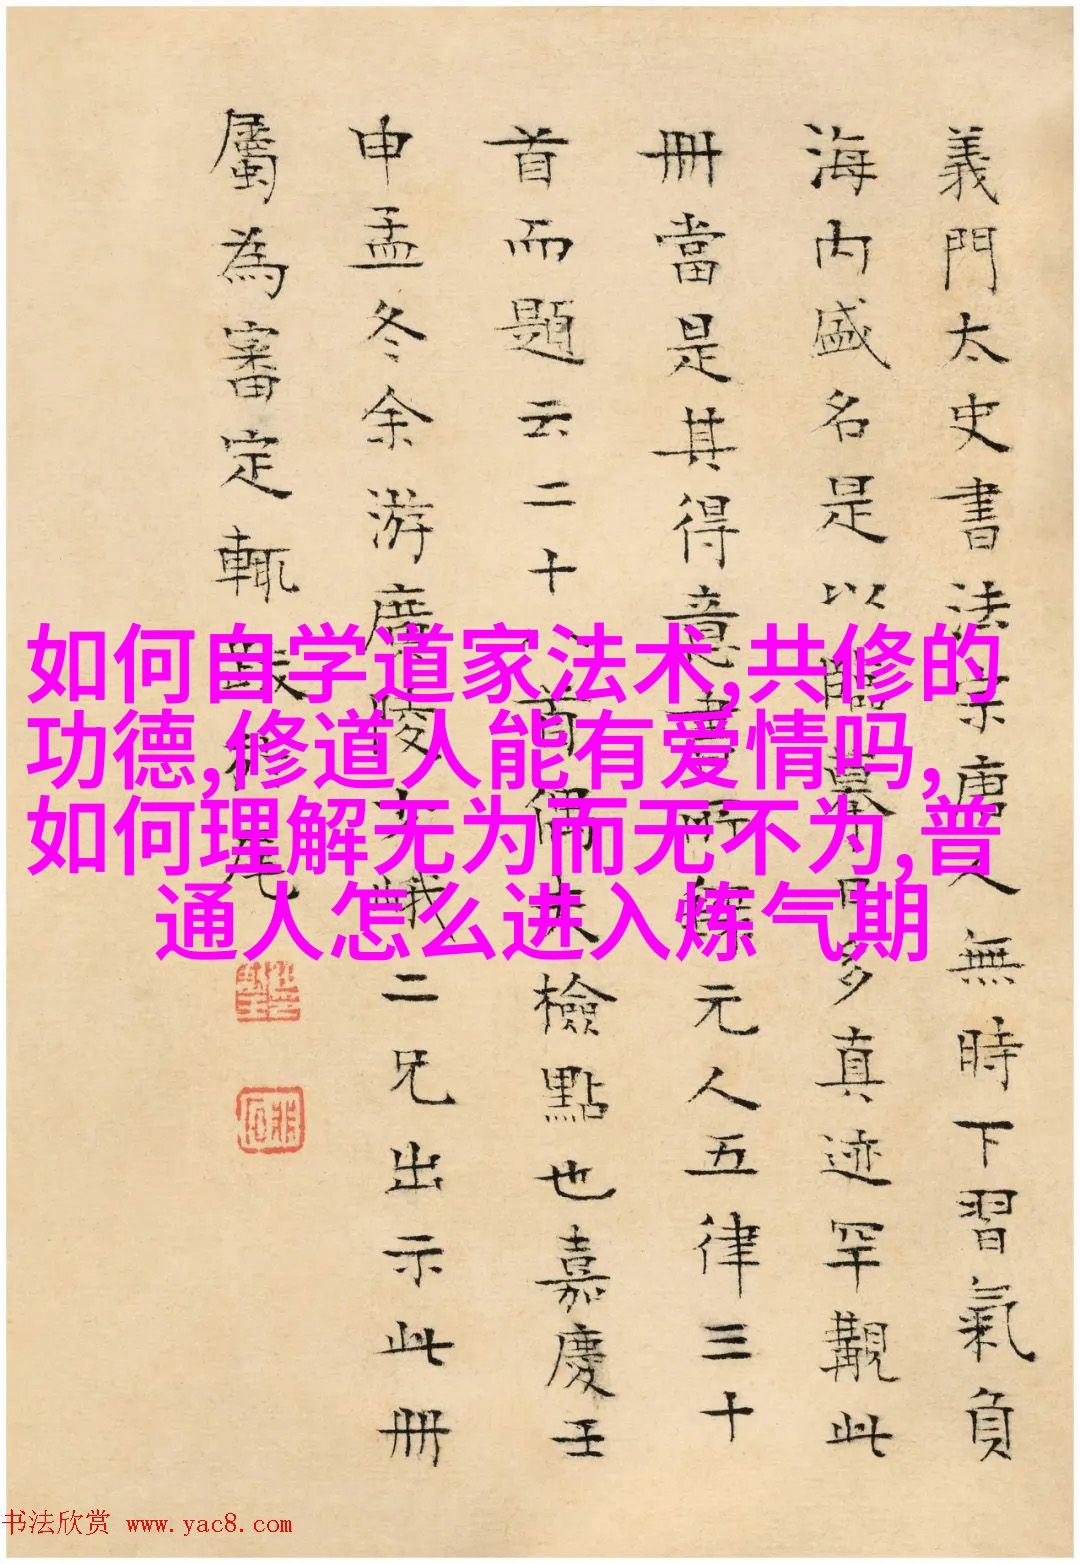 義門太史書法宗唐人無時下習氣負
海内盛名是以臨摹日多真迹罕觀此
冊當是其得意書所錄元人五律三十
首而題云二十首偶未檢點也嘉慶壬
申孟冬余游廣陵少峨二兄出示此冊
屬為審定輒跋後尾
如何自学道家法术,共修的
功德,修道人能有爱情吗,
如何理解无为而无不为,普
通人怎么进入炼气期
书法欣赏 www.yac8.com